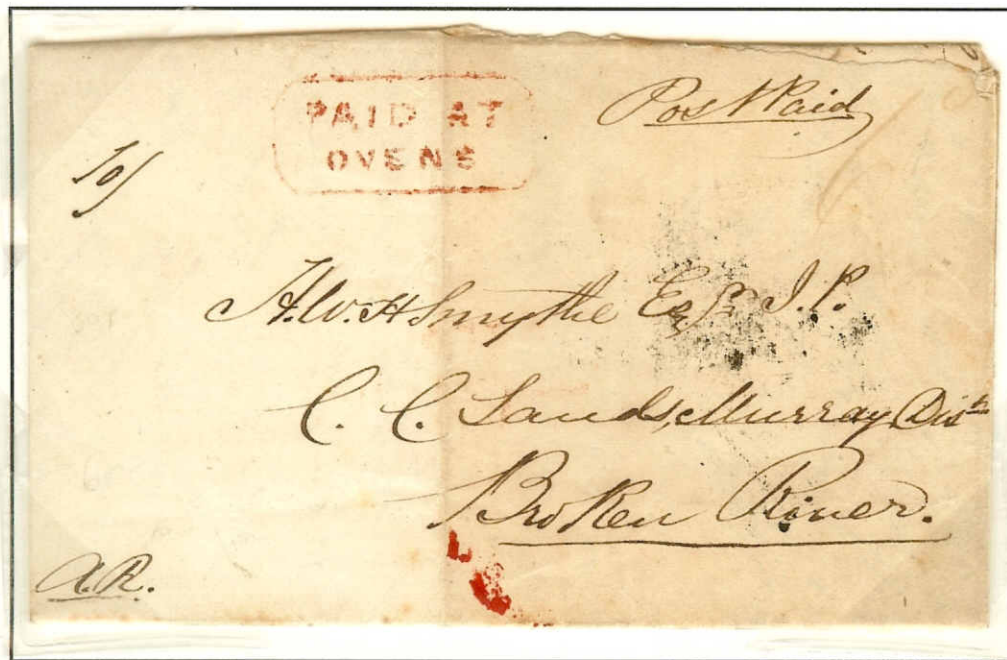 PAID AT
OVENS
Post Paid
10/
H.W.H Smythe Esqr J.P.
C. C. Lands, Murray Dist
Broken River.
A.R.